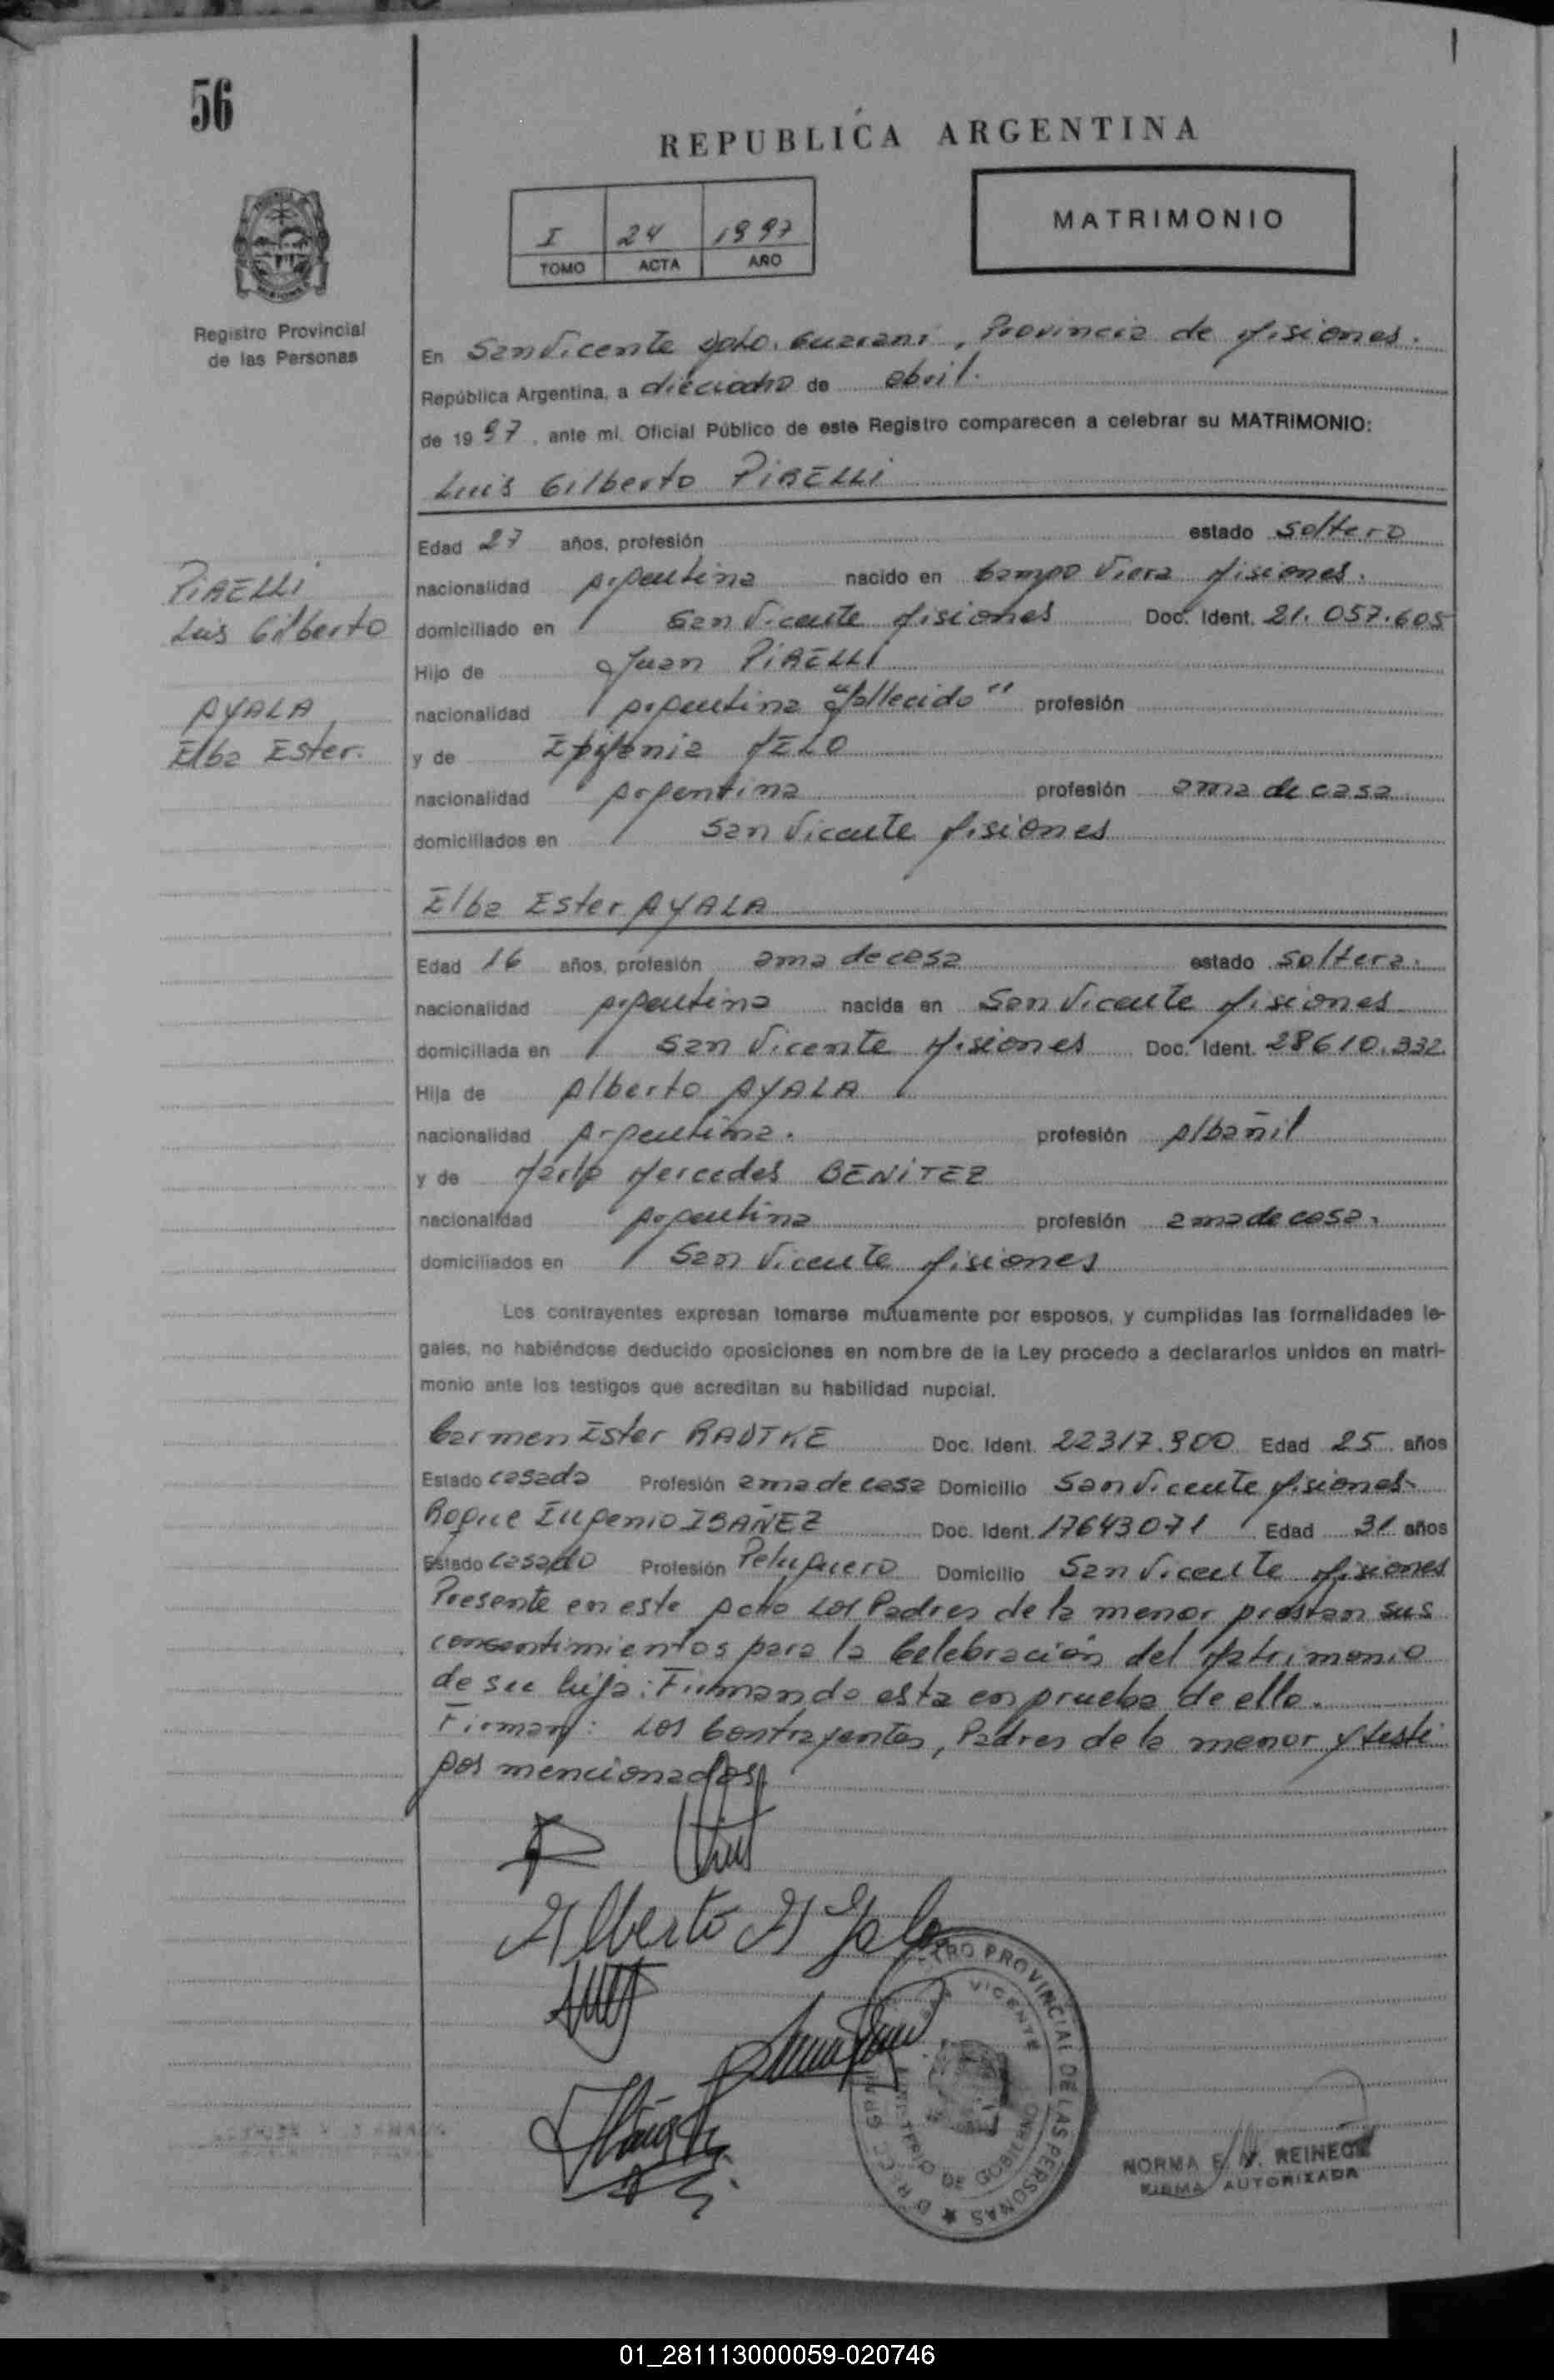 56
REPUBLICA ARGENTINA
I 24 1997
TOMO ACTA AÑO
MATRIMONIO
Registro Provincial
de las Personas
En San Vicente Dpto. Guarani, Provincia de Misiones.
República Argentina, a dieciocho de abril.
de 1997, ante mi, Oficial Público de este Registro comparecen a celebrar su MATRIMONIO:
Luis Gilberto PIRELLI
Edad 27 años, profesión estado soltero
nacionalidad Argentina nacido en Campo Viera Misiones.
domiciliado en San Vicente Misiones Doc. Ident. 21.057.605
Hijo de Juan PIRELLI
nacionalidad Argentina "fallecido" profesión
y de Epifania MELO
nacionalidad Argentina profesión ama de casa
domiciliados en San Vicente Misiones
PIRELLI
Luis Gilberto
AYALA
Elba Ester.
Elba Ester AYALA
Edad 16 años, profesión ama de casa estado soltera.
nacionalidad Argentina nacida en San Vicente Misiones
domiciliada en San Vicente Misiones Doc. Ident. 28610.332
Hija de Alberto AYALA
nacionalidad Argentina. profesión Albañil
y de Maria Mercedes BENITEZ
nacionalidad Argentina profesión ama de casa.
domiciliados en San Vicente Misiones
Los contrayentes expresan tomarse mutuamente por esposos, y cumplidas las formalidades le-
gales, no habiéndose deducido oposiciones en nombre de la Ley procedo a declararlos unidos en matri-
monio ante los testigos que acreditan su habilidad nupcial.
Carmen Ester RADTKE Doc. Ident. 22317.900 Edad 25 años
Estado casada Profesión ama de casa Domicilio San Vicente Misiones
Roque Eugenio IBAÑEZ Doc. Ident. 17643071 Edad 31 años
Estado casado Profesión Peluquero Domicilio San Vicente Misiones
Presente en este Acto Los Padres de la menor prestan sus
consentimientos para la Celebración del Matrimonio
de su hija: Firmando esta en prueba de ello.
Firman: Los Contrayentes, Padres de la menor y testi-
gos mencionados.
Alberto Ayala
REGISTRO PROVINCIAL DE LAS PERSONAS
SAN VICENTE
MINISTERIO DE GOBIERNO
NORMA E. N. REINECK
FIRMA AUTORIZADA
01_281113000059-020746